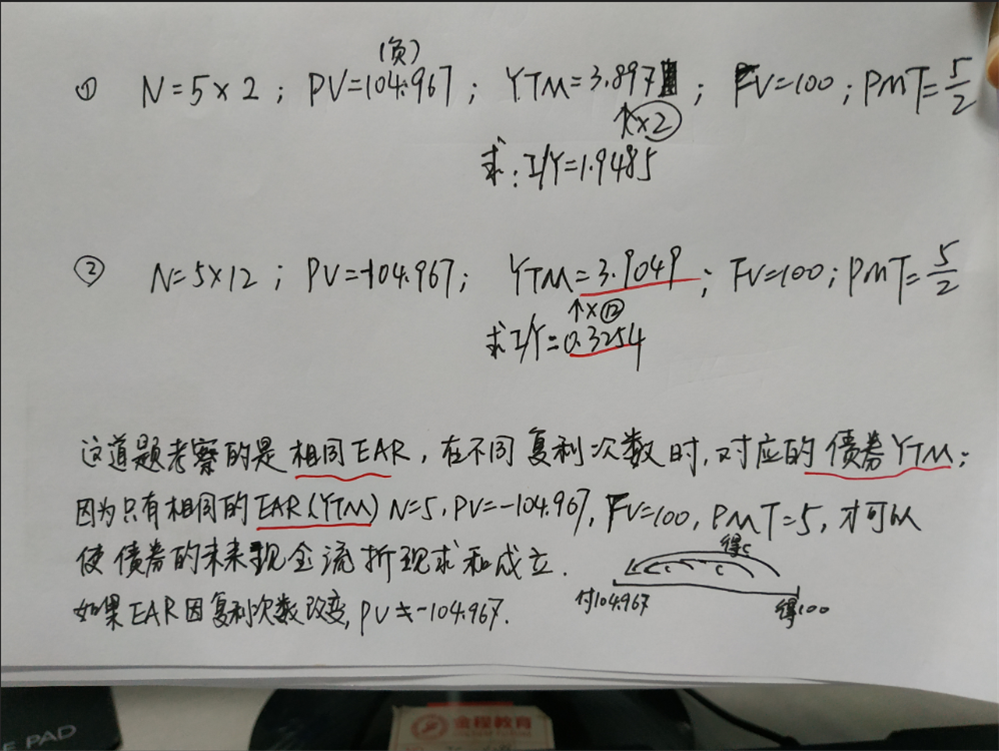 (负)
① N=5×2 ; PV=104.967 ; YTM=3.897 ; FV=100 ; PMT=5/2
↑×2
求：I/Y=1.9485
② N=5×12 ; PV=-104.967 ; YTM=3.9049 ; FV=100 ; PMT=5/2
↑×⑫
求I/Y=0.3254
这道题考察的是相同EAR，在不同复利次数时，对应的债券YTM；
因为只有相同的EAR(YTM) N=5, PV=-104.967, FV=100, PMT=5, 才可以
使债券的未来现金流折现求和成立.
如果EAR因复利次数改变, PV≠-104.967.
得c
c c
付104.967
得100
E PAD
金程教育